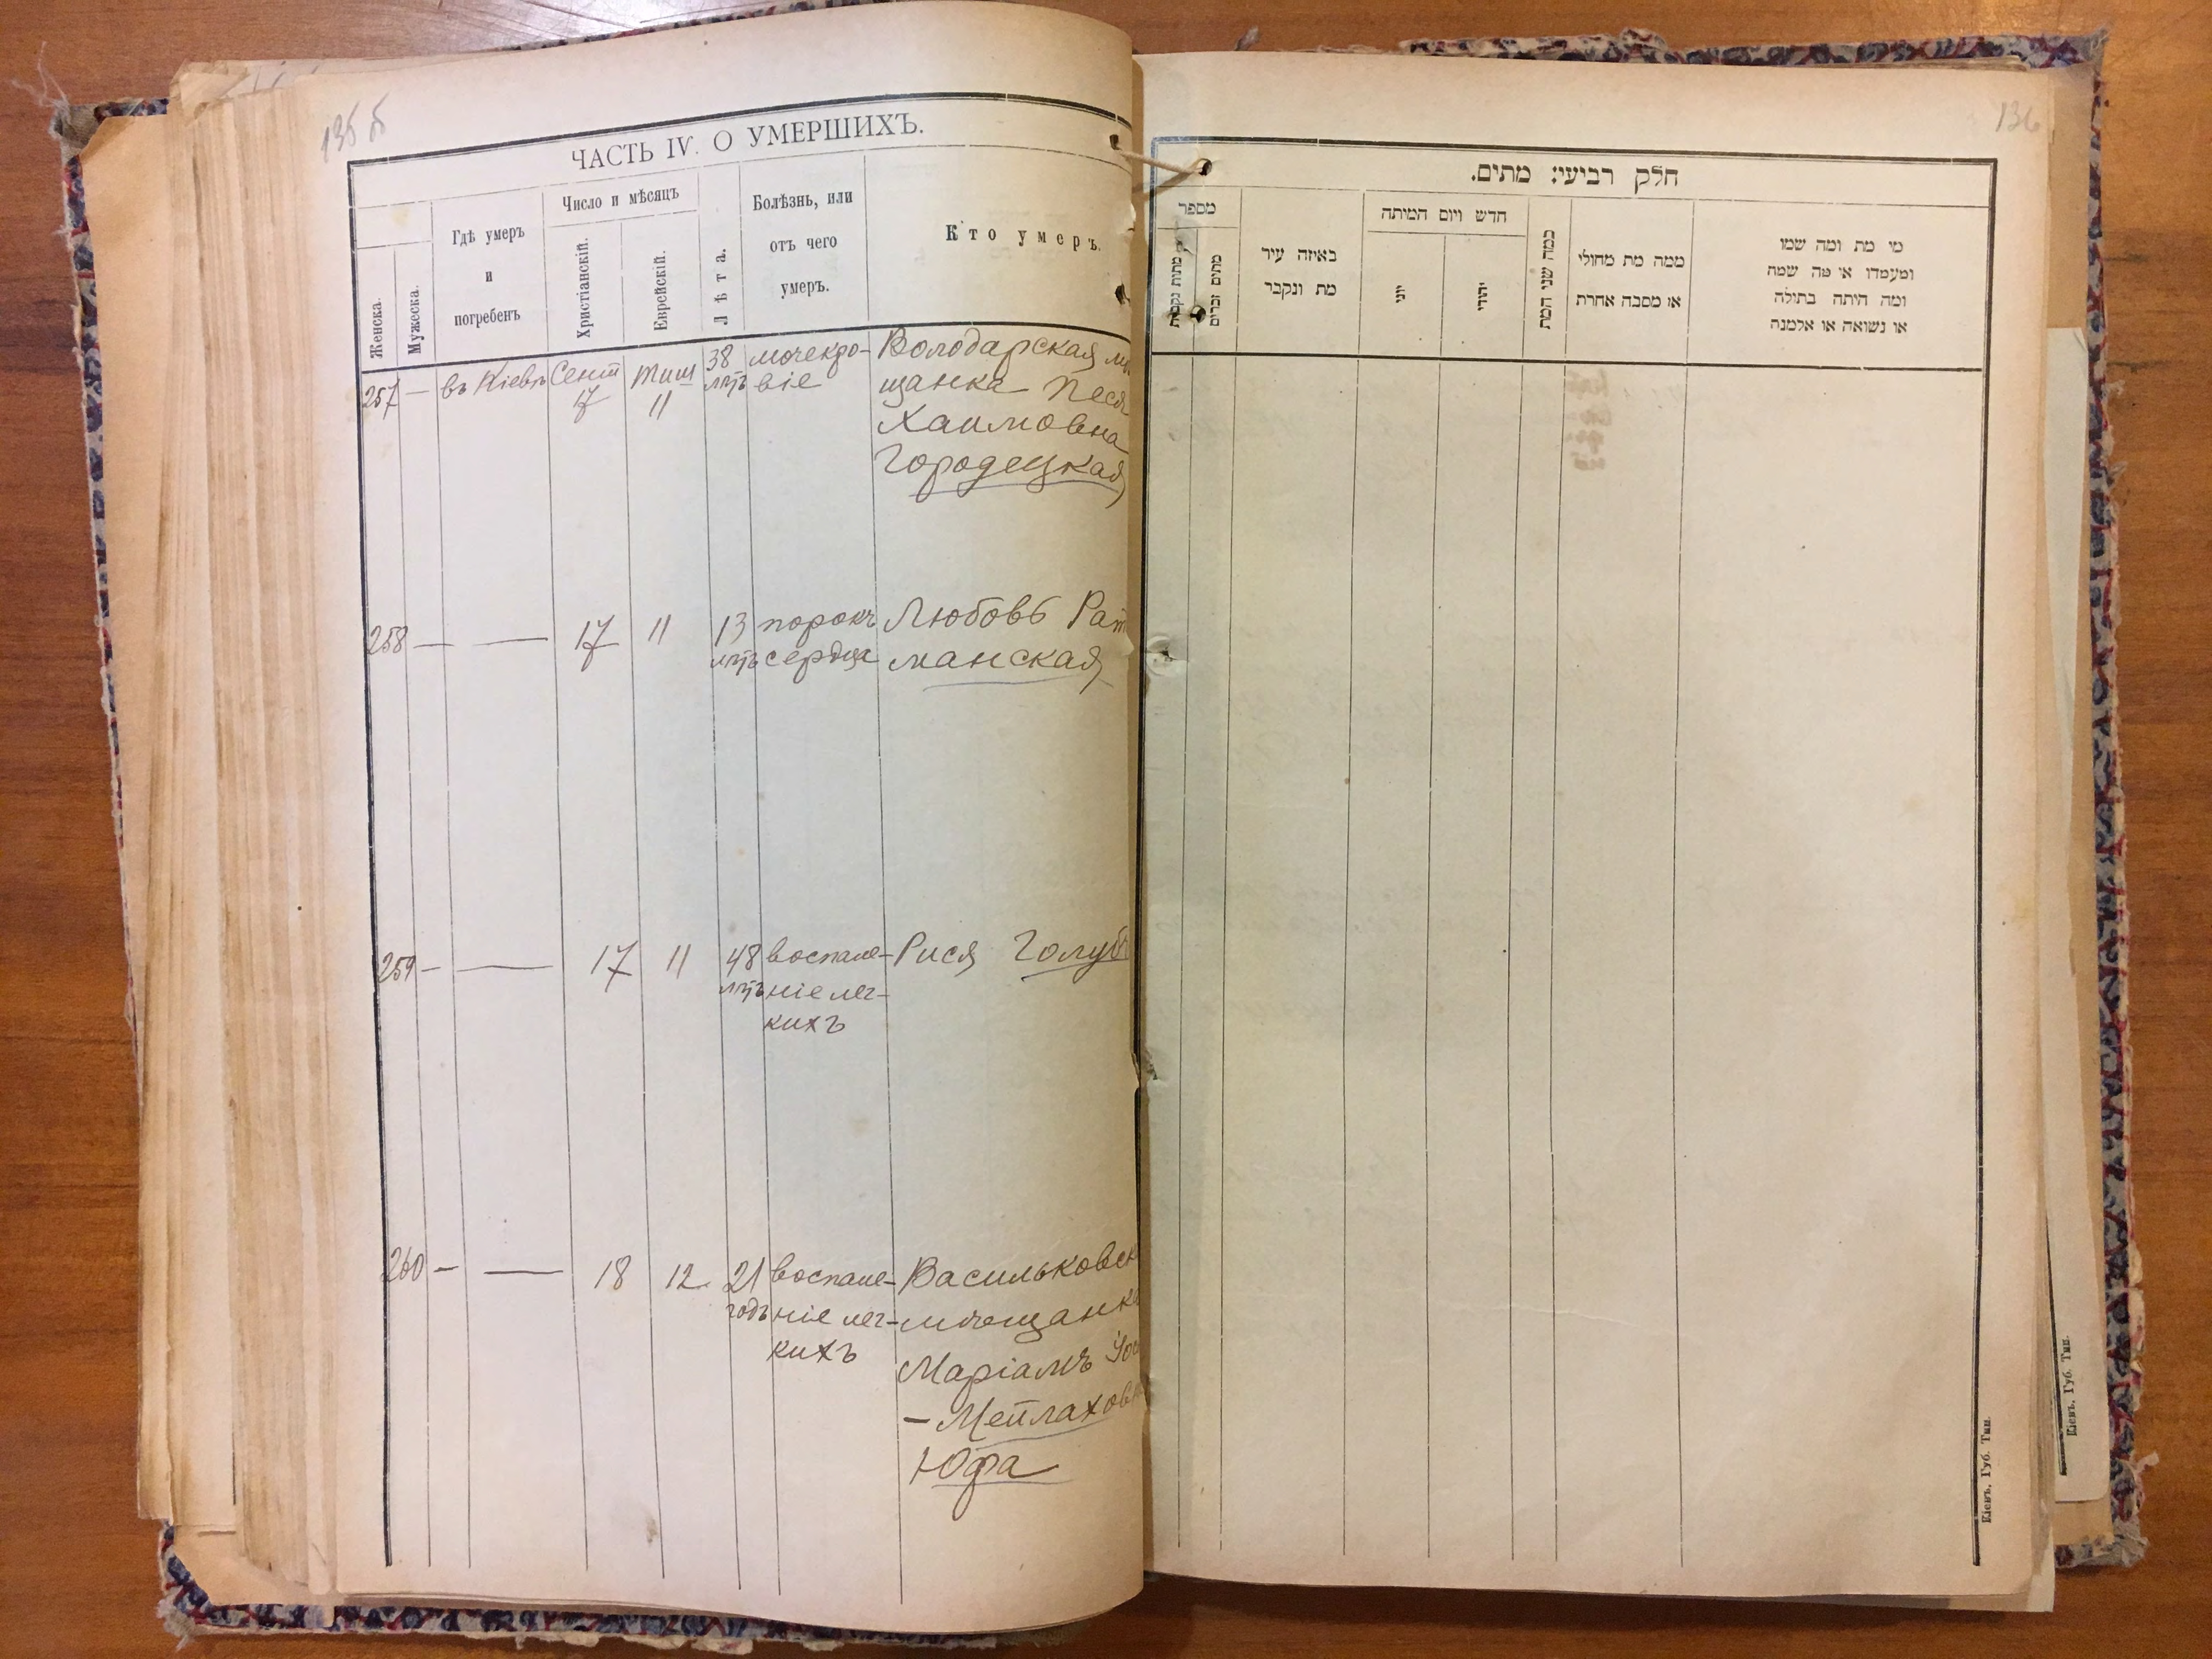 135 б
ЧАСТЬ IV. О УМЕРШИХЪ.
Женска.
Мужеска.
Гдѣ умеръ
и
погребенъ
Число и мѣсяцъ
Христіанскій.
Еврейскій.
Лѣта.
Болѣзнь, или
отъ чего
умеръ.
Кто умеръ.
257 — въ Кіевѣ Сент 17 тиш 11 38 лѣтъ мочекро-
віе
Володарская мѣ
щанка Песя
Хаимовна
Городецкая
258 — — 17 11 13 лѣтъ порокъ
сердца
Любовь Рат
манская
259 — — 17 11 48 лѣтъ воспале-
ніе лег-
кихъ
Рися Голуб
260 — — 18 12 21 годъ воспале-
ніе лег-
кихъ
Васильковск
мѣщанка
Маріамъ
— Мейлаховн
Юфа
136
חלק רביעי: מתים.
מספר
מתות נקבות
מתים זכרים
באיזה עיר
מת ונקבר
חדש ויום המיתה
יוני
יהודי
כמה שני המת
ממה מת מחולי
או מסבה אחרת
מי מת ומה שמו
ומעמדו או מה שמה
ומה היתה בתולה
או נשואה או אלמנה
Кіевъ. Губ. Тип.
Кіевъ. Губ. Тип.